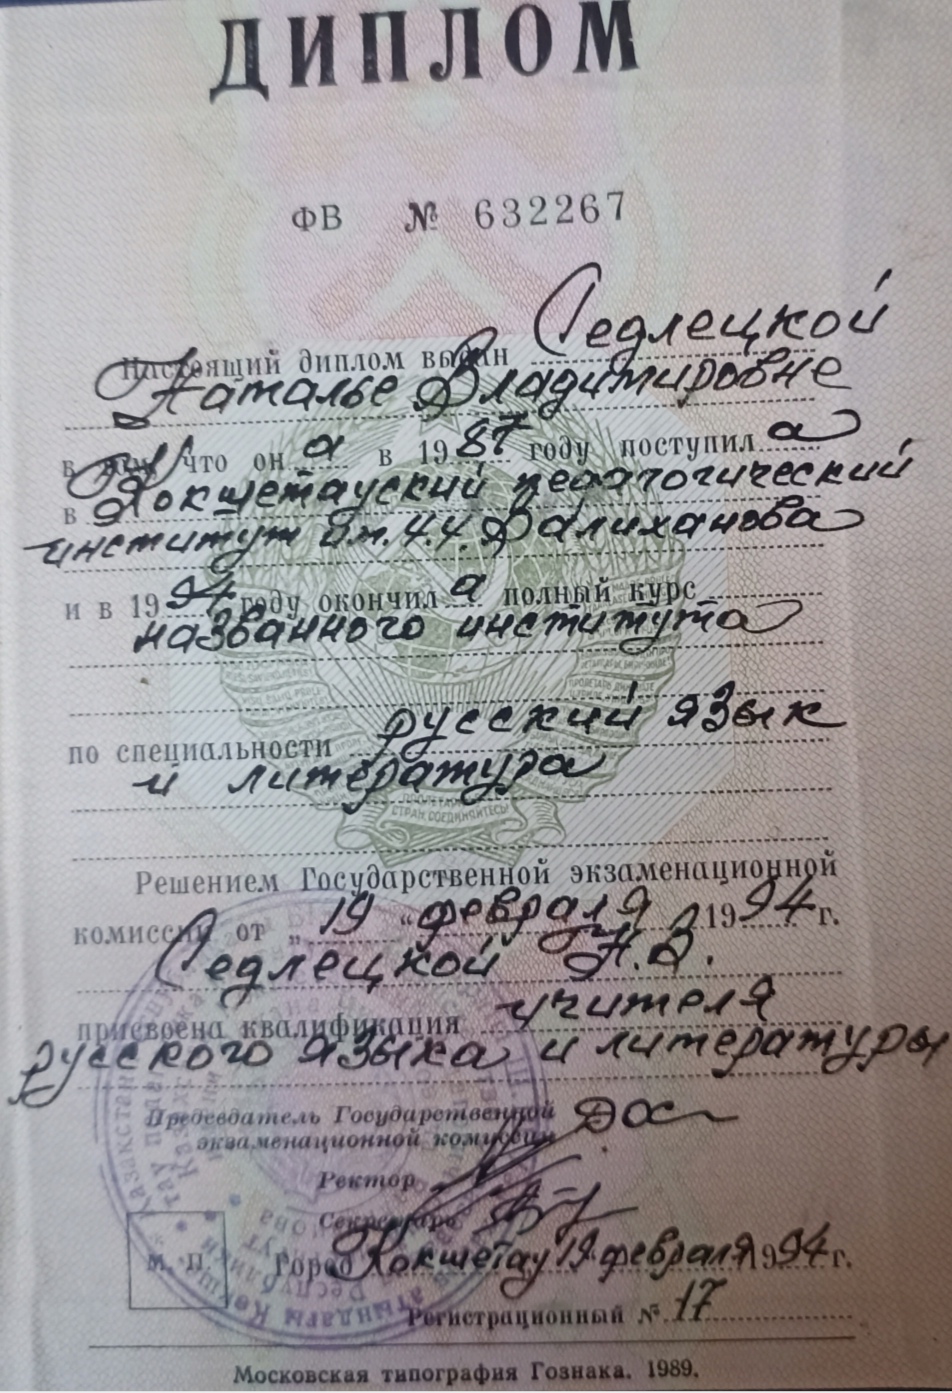 ДИПЛОМ
ФВ № 632267
Настоящий диплом выдан Седлецкой
Наталье Владимировне
в том, что он а в 1987 году поступил а
в Кокшетауский педагогический
институт им. Ч.Ч. Валиханова
и в 1994 году окончил а полный курс
названного института
по специальности русский язык
и литература
Решением Государственной экзаменационной
комиссии от „19 “ февраля 1994 г.
Седлецкой Н.В.
присвоена квалификация учителя
русского языка и литературы
Председатель Государственной
экзаменационной комиссии
Ректор
Секретарь
М. П. Город Кокшетау 19 февраля 1994 г.
Регистрационный № 17
Московская типография Гознака. 1989.